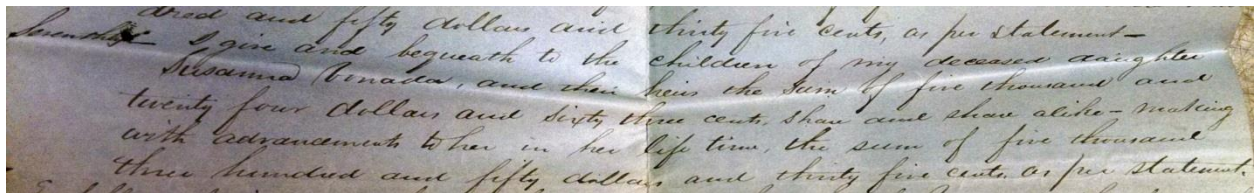 dred and fifty dollars and thirty five cents, as per statement—
Seventhly I give and bequeath to the children of my deceased daughter
Susanna and their heirs the sum of five thousand and
twenty four dollars and sixty three cents, share and share alike— making
with advancements to her in her life time, the sum of five thousand
three hundred and fifty dollars and thirty five cents as per statement.